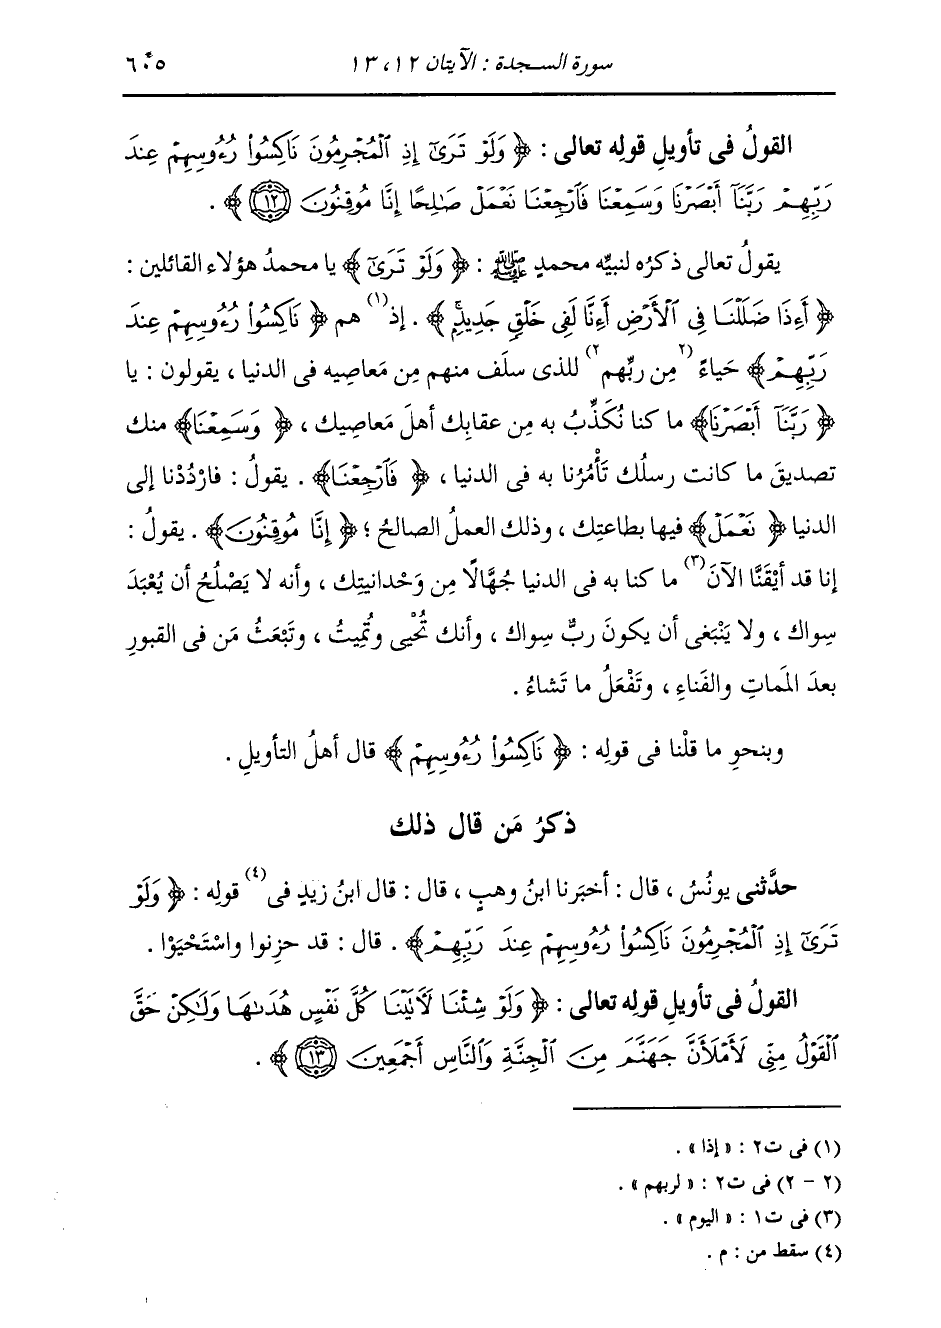 سورة السجدة : الآيتان ١٢ ، ١٣ ٦٠٥
القولُ فى تأويلِ قولِه تعالى : ﴿ وَلَوْ تَرَىٰٓ إِذِ ٱلْمُجْرِمُونَ نَاكِسُوا۟ رُءُوسِهِمْ عِندَ
رَبِّهِمْ رَبَّنَآ أَبْصَرْنَا وَسَمِعْنَا فَٱرْجِعْنَا نَعْمَلْ صَـٰلِحًا إِنَّا مُوقِنُونَ ١٢ ﴾ .
يقولُ تعالى ذكرُه لنبيِّه محمدٍ ﷺ : ﴿ وَلَوْ تَرَىٰٓ ﴾ يا محمدُ هؤلاء القائلين :
﴿ أَءِذَا ضَلَلْنَا فِى ٱلْأَرْضِ أَءِنَّا لَفِى خَلْقٍ جَدِيدٍۭ ﴾ . إذ(١) هم ﴿ نَاكِسُوا۟ رُءُوسِهِمْ عِندَ
رَبِّهِمْ ﴾ حَياءً (٢ مِن ربِّهم ٢) للذى سلَف منهم مِن مَعاصِيه فى الدنيا ، يقولون : يا
﴿ رَبَّنَآ أَبْصَرْنَا ﴾ ما كنا نُكَذِّبُ به مِن عقابِك أهلَ مَعاصِيك ، ﴿ وَسَمِعْنَا ﴾ منك
تصديقَ ما كانت رسلُك تَأْمُرُنا به فى الدنيا ، ﴿ فَٱرْجِعْنَا ﴾ . يقولُ : فارْدُدْنا إلى
الدنيا ﴿ نَعْمَلْ ﴾ فيها بطاعتِك ، وذلك العملُ الصالحُ ؛ ﴿ إِنَّا مُوقِنُونَ ﴾ . يقولُ :
إنا قد أيْقَنَّا الآنَ(٣) ما كنا به فى الدنيا جُهَّالًا مِن وَحْدانيتِك ، وأنه لا يَصْلُحُ أن يُعْبَدَ
سِواك ، ولا يَنْبَغى أن يكونَ ربٌّ سِواك ، وأنك تُحْيى وتُميتُ ، وتَبْعَثُ مَن فى القبورِ
بعدَ المَماتِ والفَناءِ ، وتَفْعَلُ ما تَشاءُ .
وبنحوِ ما قلْنا فى قولِه : ﴿ نَاكِسُوا۟ رُءُوسِهِمْ ﴾ قال أهلُ التأويلِ .
ذكرُ مَن قال ذلك
حدَّثنى يونُسُ ، قال : أخبَرنا ابنُ وهبٍ ، قال : قال ابنُ زيدٍ فى(٤) قولِه : ﴿ وَلَوْ
تَرَىٰٓ إِذِ ٱلْمُجْرِمُونَ نَاكِسُوا۟ رُءُوسِهِمْ عِندَ رَبِّهِمْ ﴾ . قال : قد حزِنوا واسْتَحْيَوْا .
القولُ فى تأويلِ قولِه تعالى : ﴿ وَلَوْ شِئْنَا لَـَٔاتَيْنَا كُلَّ نَفْسٍ هُدَىٰهَا وَلَـٰكِنْ حَقَّ
ٱلْقَوْلُ مِنِّى لَأَمْلَأَنَّ جَهَنَّمَ مِنَ ٱلْجِنَّةِ وَٱلنَّاسِ أَجْمَعِينَ ١٣ ﴾ .
(١) فى ت٢ : « إذا » .
(٢ - ٢) فى ت٢ : « لربهم » .
(٣) فى ت١ : « اليوم » .
(٤) سقط من : م .